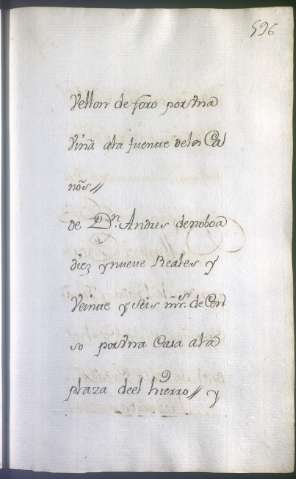 596
Vellon de foro por vna
Viña ala fuente delos Ca
nos//
de Dn. Andres de noboa
diez y nueve Reales y
Veinte y seis mrs. de Cen
so por vna Casa ala
plaza deel hierro// y